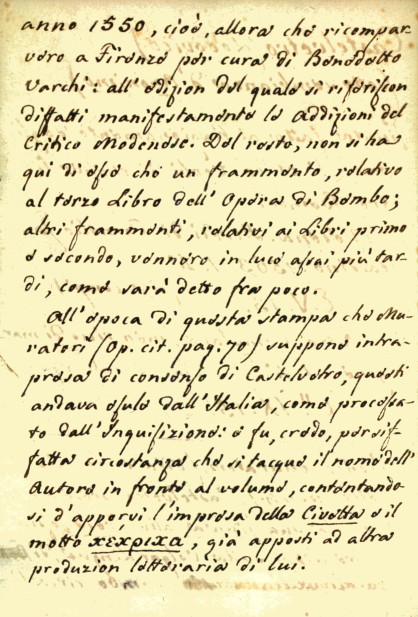 anno 1550, cioè, allora che ricompar-
vero a Firenze per cura di Benedetto
Varchi: all'edizion del quale si riferiscon
diffatti manifestamente le Addizioni del
Critico Modenese. Del resto, non si ha
qui di esse che un frammento, relativo
al terzo Libro dell'Opera di Bembo;
altri frammenti, relativi ai Libri primo
e secondo, vennero in luce assai più tar-
di, come sarà detto fra poco.
All'epoca di questa stampa che Mu-
ratori (Op. cit. pag. 70) suppone intra-
presa di consenso di Castelvetro, questi
andava esule dall'Italia, come processa-
to dall'Inquisizione: e fu, credo, per sif-
fatta circostanza che si tacque il nome dell'
Autore in fronte al volume, contentando-
si d'apporvi l'impresa della Civetta e il
motto χέχριχα, già apposti ad altra
produzion letteraria di lui.